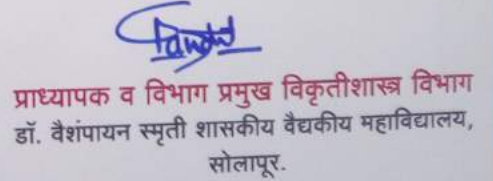 प्राध्यापक व विभाग प्रमुख विकृतीशास्त्र विभाग
डॉ. वैशंपायन स्मृती शासकीय वैद्यकीय महाविद्यालय,
सोलापूर.